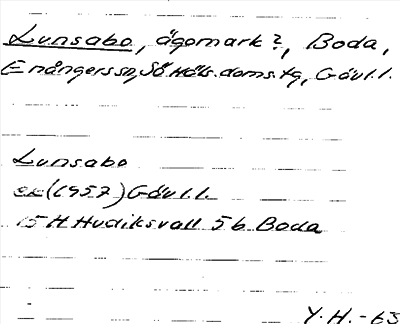 Lunsabo, ägomark?, Boda,
Enångers sn, Sö. Häls. doms. tg, Gävl. l.
Lunsabo
ek (1957) Gävl. l.
15 H Hudiksvall 5 b Boda
Y. H. - 63